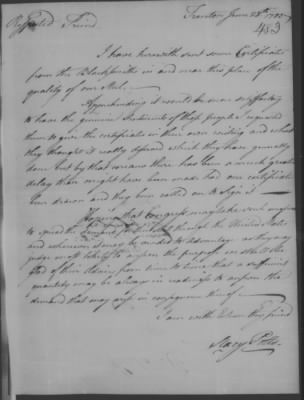 Respected Friend
Trenton June 28th
453
I have herewith sent some Certificates
from the Blacksmiths in and near this place of the
quality of our Steel.
Apprehending it would be more satisfactory
to have the genuine Sentiments of these people I requested
them to give the certificates in their own writing and what
they thought it really deserved which they have generally
done but by that means there has been a much greater
delay than might have been made had one certificate
been drawn and they been called on to sign it
Hoping that Congress may take such
to spread the through the United States
and wherever it may be needed to advantage as they may
judge most likely to answer the purpose
of their from time to time that a sufficient
quantity may be always in readiness to answer the
demand that may arise in consequence thereof
I am with Esteem thy friend
Stacy Potts